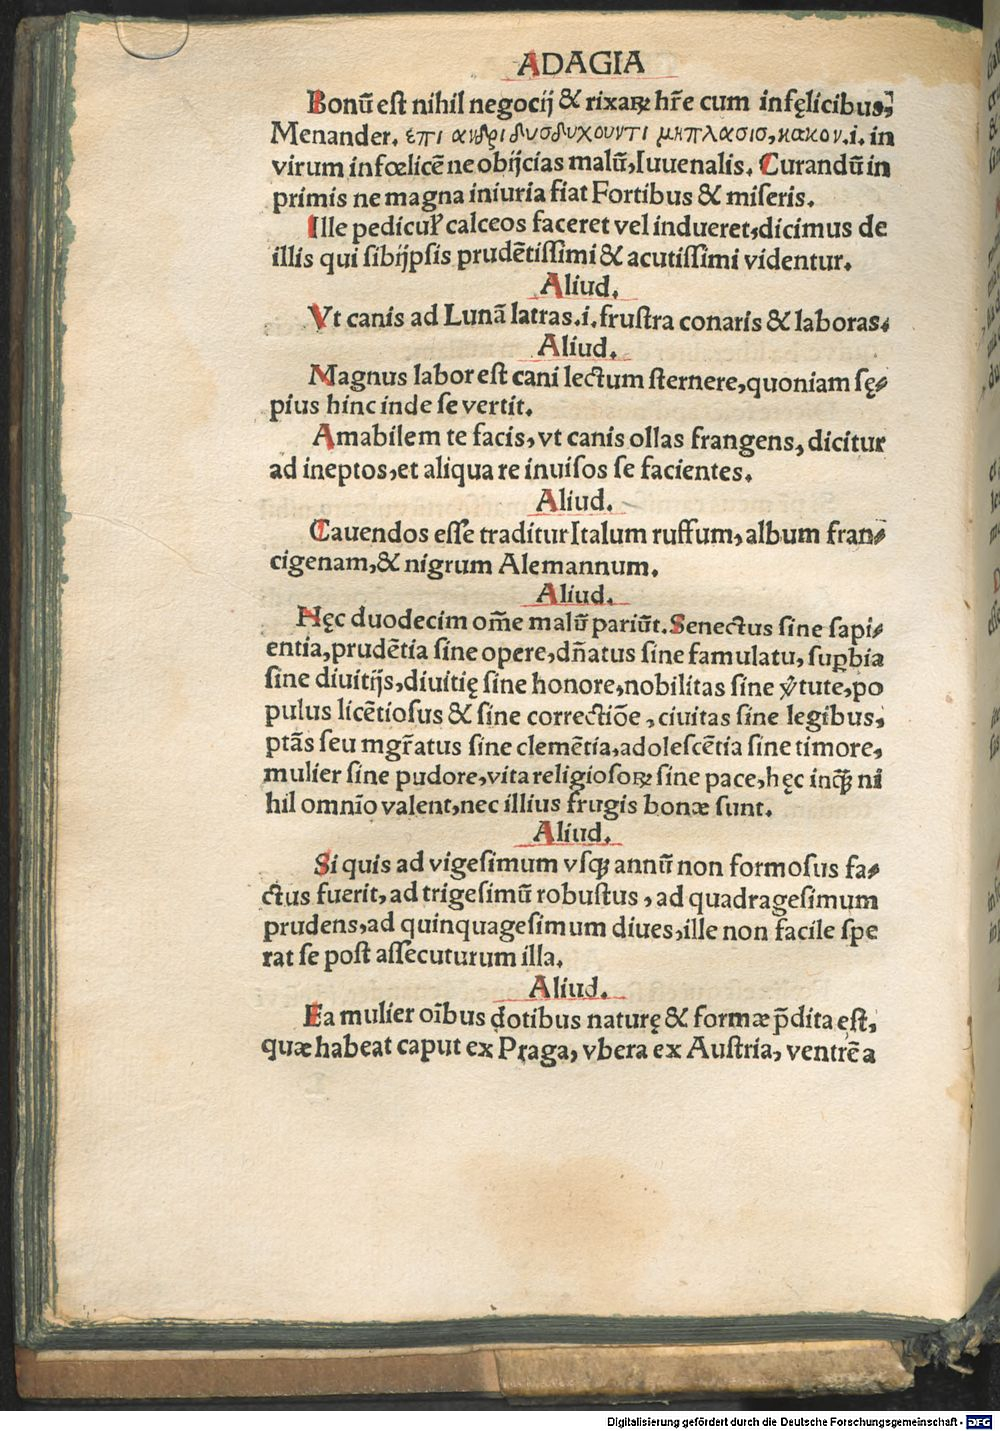 ADAGIA
Bonū est nihil negocij & rixaꝝ hr̄e cum infęlicibus,
Menander. επι ανδρι δυσδυχουντι μηπλασισ, κακον .i. in
virum infœlicē ne obijcias malū, Iuuenalis. Curandū in
primis ne magna iniuria fiat Fortibus & miseris.
Ille pediculꝰ calceos faceret vel indueret, dicimus de
illis qui sibijpsis prudētissimi & acutissimi videntur.
Aliud.
Vt canis ad Lunā latras .i. frustra conaris & laboras.
Aliud.
Magnus labor est cani lectum sternere, quoniam sę⸗
pius hinc inde se vertit.
Amabilem te facis, vt canis ollas frangens, dicitur
ad ineptos, et aliqua re inuisos se facientes.
Aliud.
Cauendos esse traditur Italum ruffum, album fran⸗
cigenam, & nigrum Alemannum.
Aliud.
Hęc duodecim om̄e malū pariūt. Senectus sine sapi⸗
entia, prudētia sine opere, dn̄atus sine famulatu, suꝑbia
sine diuitijs, diuitię sine honore, nobilitas sine v̓tute, po
pulus licētiosus & sine correctiōe, ciuitas sine legibus,
ptās seu mgr̄atus sine clemētia, adolescētia sine timore,
mulier sine pudore, vita religiosoꝝ sine pace, hęc inqꝫ ni
hil omnīo valent, nec illius frugis bonæ sunt.
Aliud.
Si quis ad vigesimum vsqꝫ annū non formosus fa⸗
ctus fuerit, ad trigesimū robustus, ad quadragesimum
prudens, ad quinquagesimum diues, ille non facile spe
rat se post assecuturum illa.
Aliud.
Ea mulier oībus dotibus naturę & formæ p̄dita est,
quæ habeat caput ex Praga, vbera ex Austria, ventrē a
Digitalisierung gefördert durch die Deutsche Forschungsgemeinschaft - DFG